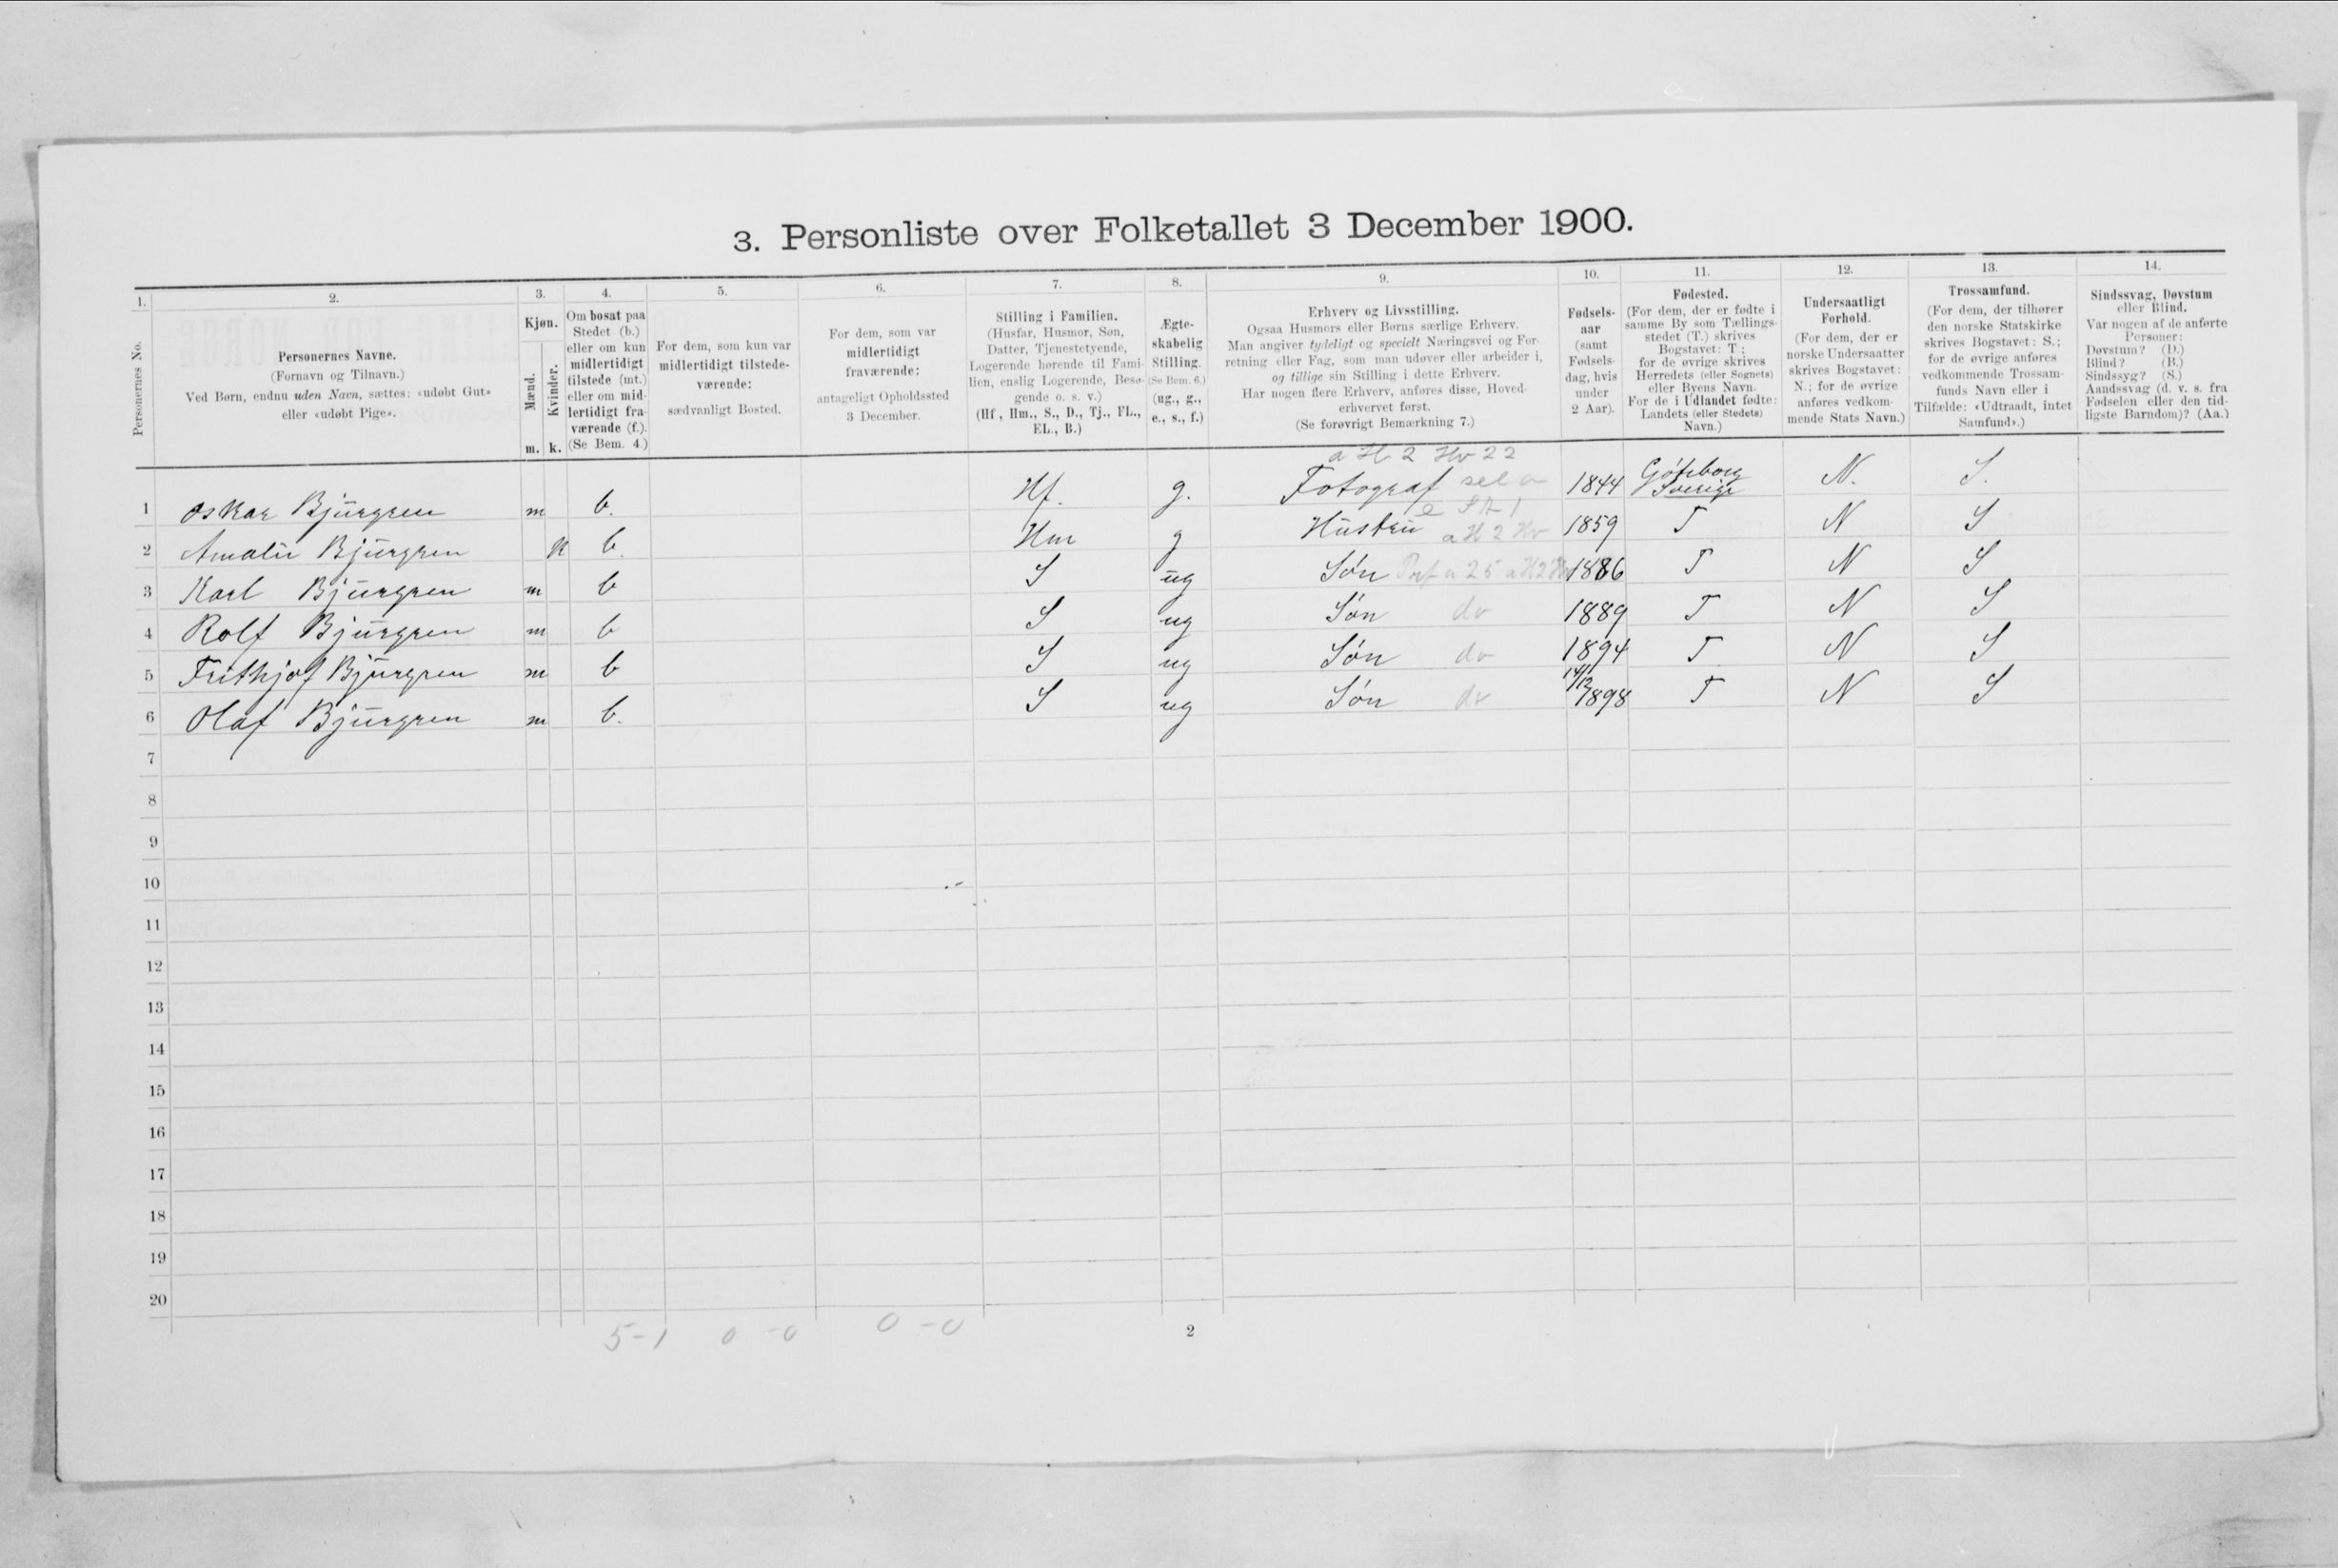 3. Personliste over Folketallet 3 December 1900.
1. 2. 3. 4. 5. 6. 7. 8. 9. 10. 11. 12. 13. 14.
Personernes No.
Personernes Navne.
(Fornavn og Tilnavn.)
Ved Børn, endnu uden Navn, sættes: «udøbt Gut»
eller «udøbt Pige».
Kjøn.
Mænd.
Kvinder.
m. k.
Om bosat paa
Stedet (b.)
eller om kun
midlertidigt
tilstede (mt.)
eller om mid-
lertidigt fra-
værende (f.).
(Se Bem. 4.)
For dem, som kun var
midlertidigt tilstede-
værende:
sædvanligt Bosted.
For dem, som var
midlertidigt
fraværende:
antageligt Opholdssted
3 December.
Stilling i Familien.
(Husfar, Husmor, Søn,
Datter, Tjenestetyende,
Logerende hørende til Fami-
lien, enslig Logerende, Besø-
gende o. s. v.)
(Hf., Hm., S., D., Tj., FL.,
EL., B.)
Ægte-
skabelig
Stilling.
(Se Bem. 6.)
(ug., g.,
e., s., f.)
Erhverv og Livsstilling.
Ogsaa Husmors eller Børns særlige Erhverv.
Man angiver tydeligt og specielt Næringsvei og For-
retning eller Fag, som man udøver eller arbeider i,
og tillige sin Stilling i dette Erhverv.
Har nogen flere Erhverv, anføres disse, Hoved-
erhvervet først.
(Se forøvrigt Bemærkning 7.)
Fødsels-
aar
(samt
Fødsels-
dag, hvis
under
2 Aar).
Fødested.
(For dem, der er fødte i
samme By som Tællings-
stedet (T.) skrives
Bogstavet: T.;
for de øvrige skrives
Herredets (eller Sognets)
eller Byens Navn.
For de i Udlandet fødte:
Landets (eller Stedets)
Navn.)
Undersaatligt
Forhold.
(For dem, der er
norske Undersaatter
skrives Bogstavet:
N.; for de øvrige
anføres vedkom-
mende Stats Navn.)
Trossamfund.
(For dem, der tilhører
den norske Statskirke
skrives Bogstavet: S.;
for de øvrige anføres
vedkommende Trossam-
funds Navn eller i
Tilfælde: «Udtraadt, intet
Samfund».)
Sindssvag, Døvstum
eller Blind.
Var nogen af de anførte
Personer:
Døvstum? (D.)
Blind? (B.)
Sindssyg? (S.)
Aandssvag (d. v. s. fra
Fødselen eller den tid-
ligste Barndom)? (Aa.)
a H 2 Hv 22
1 Oskar Bjürgren m b. Hf. g. Fotograf sel a 1844 Gøteborg Sverige N. S.
e St 1
2 Amalie Bjürgren k b. Hm g Hustru a H 2 Hv 1859 T N S
3 Karl Bjürgren m b S ug Søn a 25 a H2 Hv 1886 T N S
4 Rolf Bjürgren m b S ug Søn do 1889 T N S
5 Frithjof Bjürgren m b S ug Søn do 1894 T N S
6 Olaf Bjürgren m b. S ug Søn do 14/12 1898 T N S
7
8
9
10
11
12
13
14
15
16
17
18
19
20
5-1 0-0 0-0
2